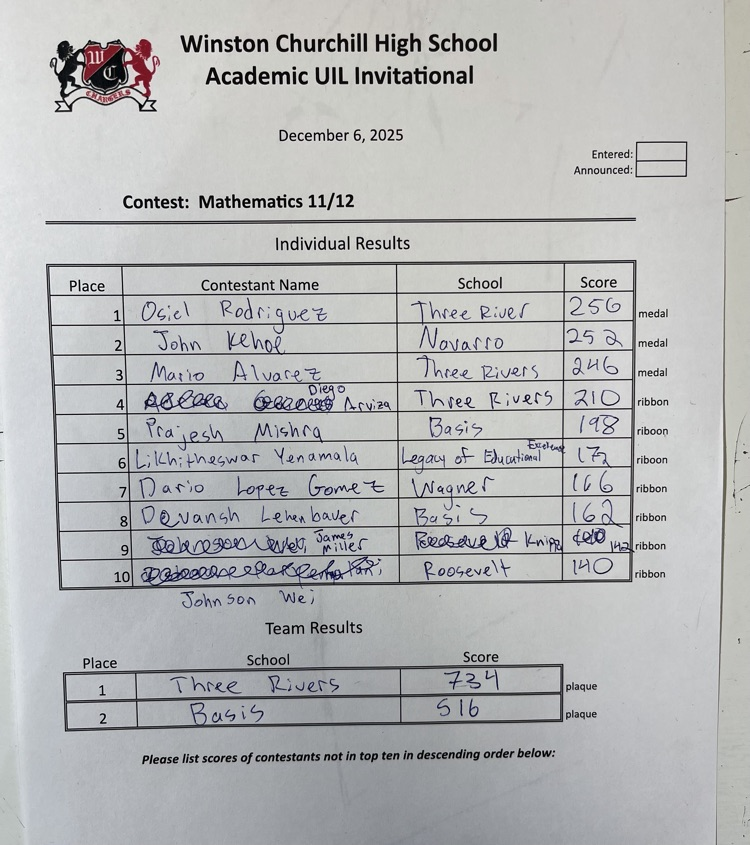 WC
CHARGERS
Winston Churchill High School
Academic UIL Invitational
December 6, 2025
Entered:
Announced:
Contest: Mathematics 11/12
Individual Results
Place Contestant Name School Score
1 Osiel Rodriguez Three River 256 medal
2 John Kehoe Navarro 252 medal
3 Mario Alvarez Three Rivers 246 medal
4 Diego Arviza Three Rivers 210 ribbon
5 Prajesh Mishra Basis 198 riboon
6 Likhitheswar Yenamala Legacy of Educational Excellence 172 riboon
7 Dario Lopez Gomez Wagner 166 ribbon
8 Devansh Lehenbauer Basis 162 ribbon
9 James Miller Knipp 142 ribbon
10 Johnson Wei Roosevelt 140 ribbon
Team Results
Place School Score
1 Three Rivers 734 plaque
2 Basis 516 plaque
Please list scores of contestants not in top ten in descending order below: